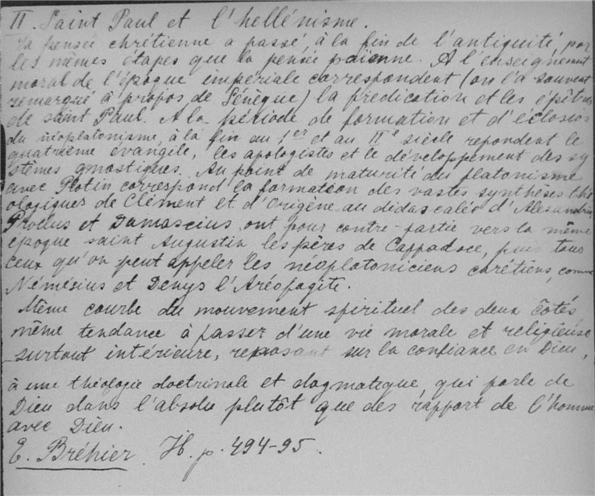 II. Saint Paul et l'hellénisme.
La pensée chrétienne a passé, à la fin de l'antiquité, par
les mêmes étapes que la pensée païenne. A l'enseignement
moral de l'époque impériale correspondent (on l'a souvent
remarqué à propos de Sénèque) la prédication et les épîtres
de saint Paul. A la période de formation et d'éclosion
du néoplatonisme, à la fin du Ier et au IIe siècle répondent le
quatrième évangile, les apologistes et le développement des sy-
stèmes gnostiques. Au point de maturité du platonisme
avec Plotin correspond la formation des vastes synthèses thé-
ologiques de Clément et d'Origène au didascalée d'Alexandrie
Proclus et Damascius ont pour contre-partie vers la même
époque saint Augustin les pères de Cappadoce, puis tous
ceux qu'on peut appeler les néoplatoniciens chrétiens, comme
Némésius et Denys l'Aréopagite.
Même courbe du mouvement spirituel des deux côtés,
même tendance à passer d'une vie morale et religieuse
surtout intérieure, reposant sur la confiance en Dieu,
à une théologie doctrinale et dogmatique, qui parle de
Dieu dans l'absolu plutôt que des rapport de l'homme
avec Dieu.
E. Bréhier. H. p. 494-95.